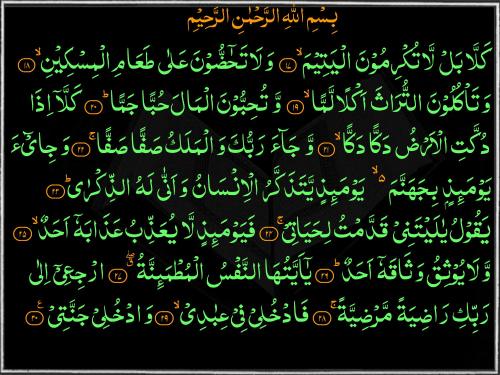 بِسْمِ اللّٰهِ الرَّحْمٰنِ الرَّحِیْمِ
كَلَّا بَلْ لَّا تُكْرِمُوْنَ الْیَتِیْمَۙ ۝۱۷ وَ لَا تَحٰٓضُّوْنَ عَلٰی طَعَامِ الْمِسْكِیْنِۙ ۝۱۸
وَ تَاْكُلُوْنَ التُّرَاثَ اَكْلًا لَّمًّاۙ ۝۱۹ وَّ تُحِبُّوْنَ الْمَالَ حُبًّا جَمًّاؕ ۝۲۰ كَلَّاۤ اِذَا
دُكَّتِ الْاَرْضُ دَكًّا دَكًّاۙ ۝۲۱ وَّ جَآءَ رَبُّكَ وَ الْمَلَكُ صَفًّا صَفًّاۚ ۝۲۲ وَ جِایْٓءَ
یَوْمَىِٕذٍۭ بِجَهَنَّمَ ۙ۬ یَوْمَىِٕذٍ یَّتَذَكَّرُ الْاِنْسَانُ وَ اَنّٰی لَهُ الذِّكْرٰیؕ ۝۲۳
یَقُوْلُ یٰلَیْتَنِیْ قَدَّمْتُ لِحَیَاتِیْۚ ۝۲۴ فَیَوْمَىِٕذٍ لَّا یُعَذِّبُ عَذَابَهٗۤ اَحَدٌۙ ۝۲۵
وَّ لَا یُوْثِقُ وَ ثَاقَهٗۤ اَحَدٌؕ ۝۲۶ یٰۤاَیَّتُهَا النَّفْسُ الْمُطْمَىِٕنَّةُۗۖ ۝۲۷ ارْجِعِیْۤ اِلٰی
رَبِّكِ رَاضِیَةً مَّرْضِیَّةًۚ ۝۲۸ فَادْخُلِیْ فِیْ عِبٰدِیْۙ ۝۲۹ وَ ادْخُلِیْ جَنَّتِیْ۠ ۝۳۰